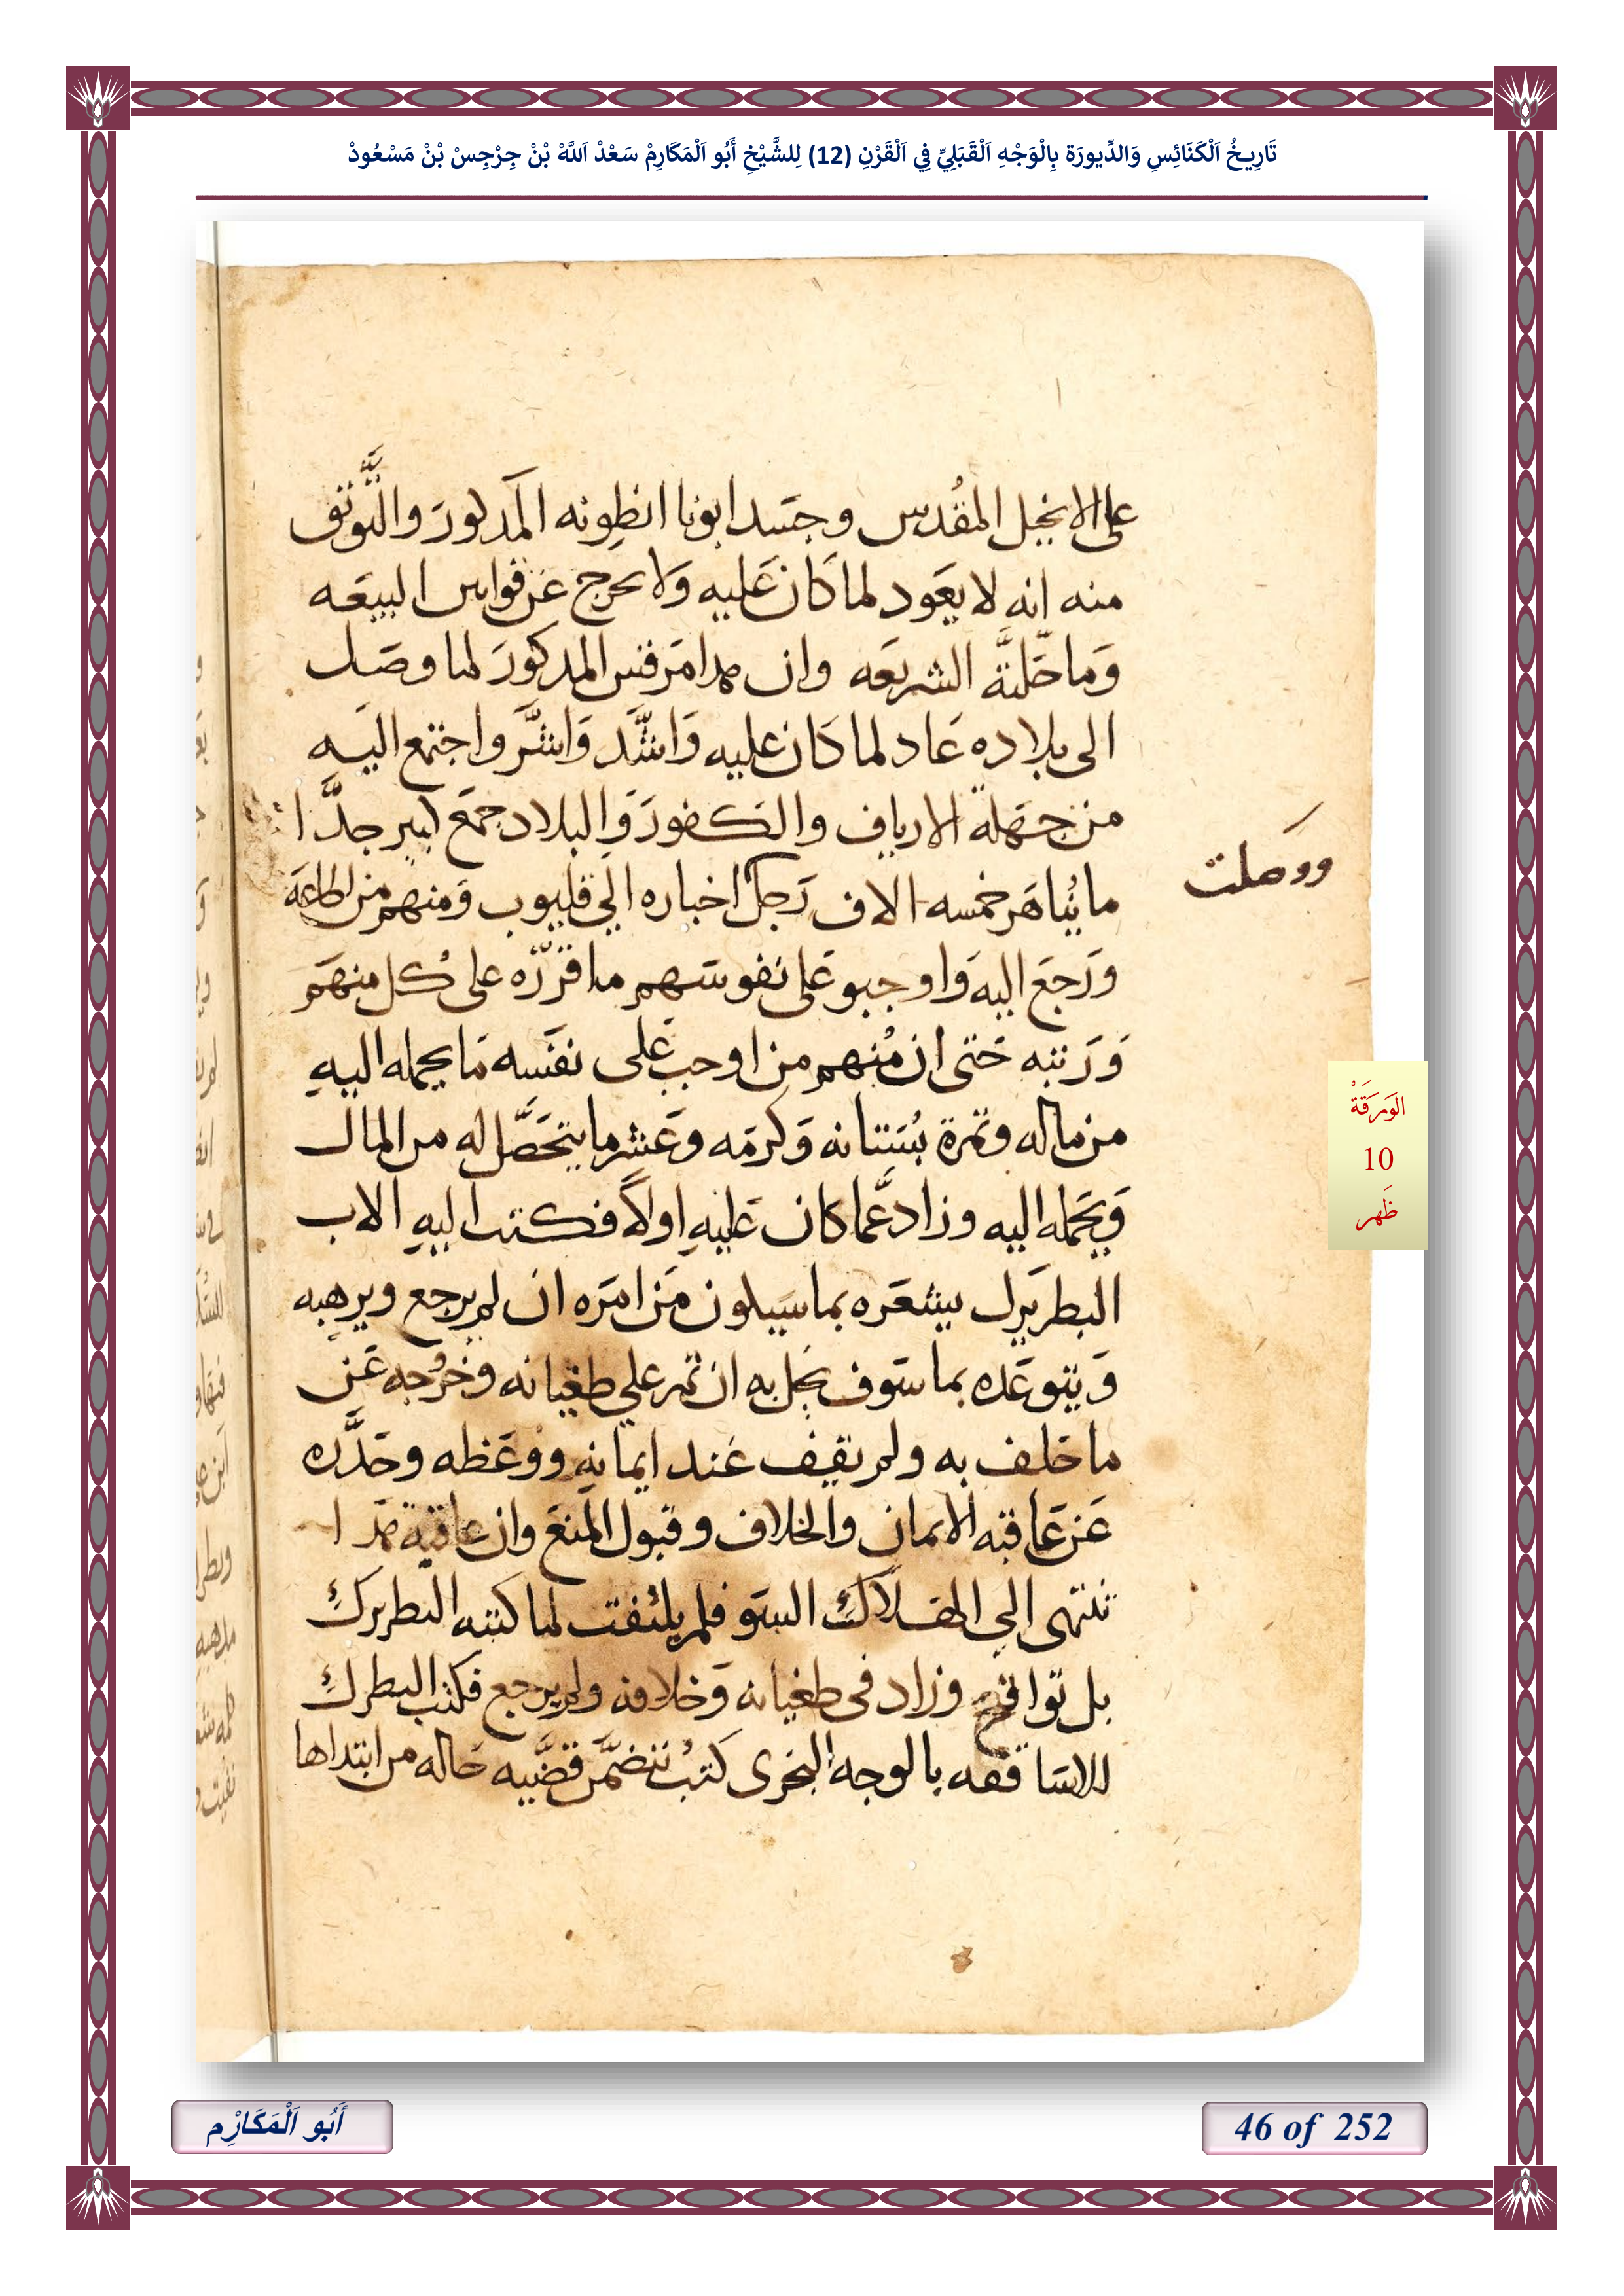 تَارِيخُ اَلْكَنَائِسِ وَالدِّيورَة بِالْوَجْهِ اَلْقَبَلِيِّ فِي اَلْقَرْنِ (12) لِلشَّيْخِ أَبُو اَلْمَكَارِمْ سَعْدْ اَللَّهْ بْنْ جِرْجِسْ بْنْ مَسْعُودْ
على الانجيل المقُدس وجسَد ابونا انطونه المذكورَ والتَّوثق
منه انه لا يعَود لما كان عَليه وَلا يخرج عَن قوانين البيعَه
وَما حَللتَّه الشريعَه وان هدا مَرقس المدكورَ لما وصَل
الى بلاده عَاد لما كان عليه وَاشَّد وَاشَّر واجتمع اليه
من جهَلة الارياف والكفورَ وَالبلاد جمَع كبير جدَّا
ما يُناهَز خمسه الاف رَجل اخباره الي قليوب وَمنهم من اطاعَه
ووصلت
ورَجَع اليه وَاوجبو عَلى نفوسَهم ما قرّرَه على كُل منهَم
وَرَتبه حَتى ان مُنهم من اوجب عَلى نفسَه مَا يحمله اليهِ
من ماله وثمرة بُستانه وَكرمَه وعَشر ما يتحَصَّل له من المال
وَيحَمله اليه وزاد عَّما كان عَليهِ اولاً فكتب اليهِ الاب
البطريرك يشعَره بما سَيلون مَن امرَه ان لم يرجع ويرهبه
وَيتوعَده بما سَوف يحَل به ان تمر علي طغيانه وخرُوجه عَن
ما حَلف به ولم يقيف عَند ايمانهِ ووعَظه وحَدَّره
عَن عَاقبه الايمان والخلاف وقبول المنعَ وان عاقبه هَدا
تنتهى الي الهلاك السَو فلم يلتفت لما كتبه البطريرك
بل تواقح وزاد فى طغيانه وَخلافه ولم يرجع فكتب البطرك
للاسَاقفه بالوجه البحرى كتبُ تتضمَّن قضَّيه حَاله من ابتداها
الوَرَقَةْ
10
ظَهر
أَبُو اَلْمَكَارْم
46 of 252